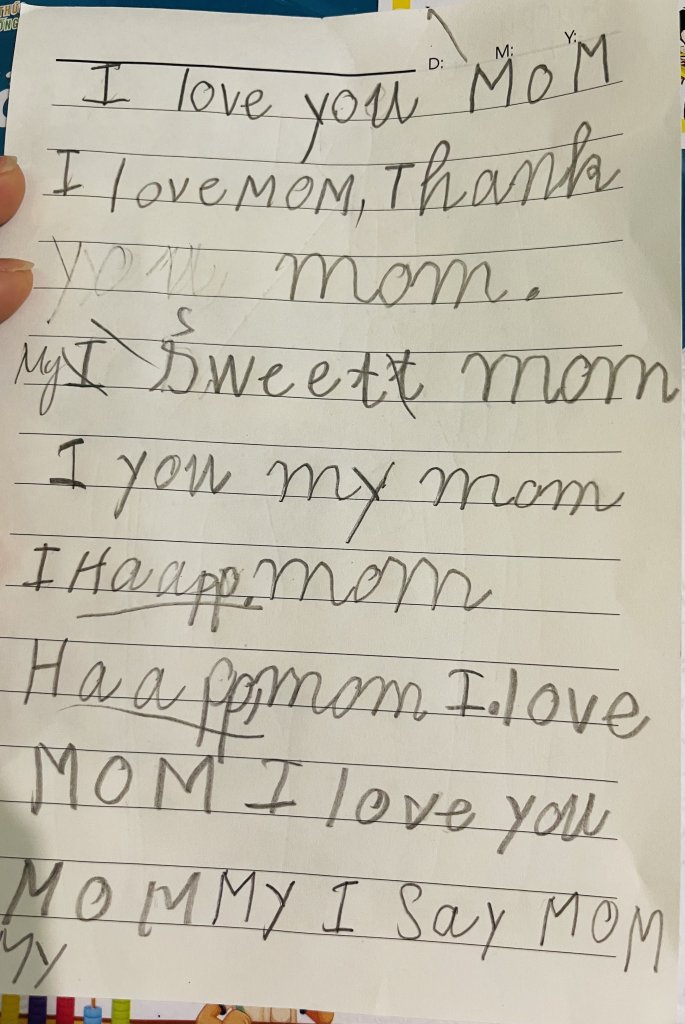 THỨ
D: M: Y:
I love you MOM
I love MOM, Thank
you mom.
S
My I Sweett mom
I you my mom
I Haapp. mom
Haapp, mom I. love
MOM I love you
MOMMY I Say MOM
MY